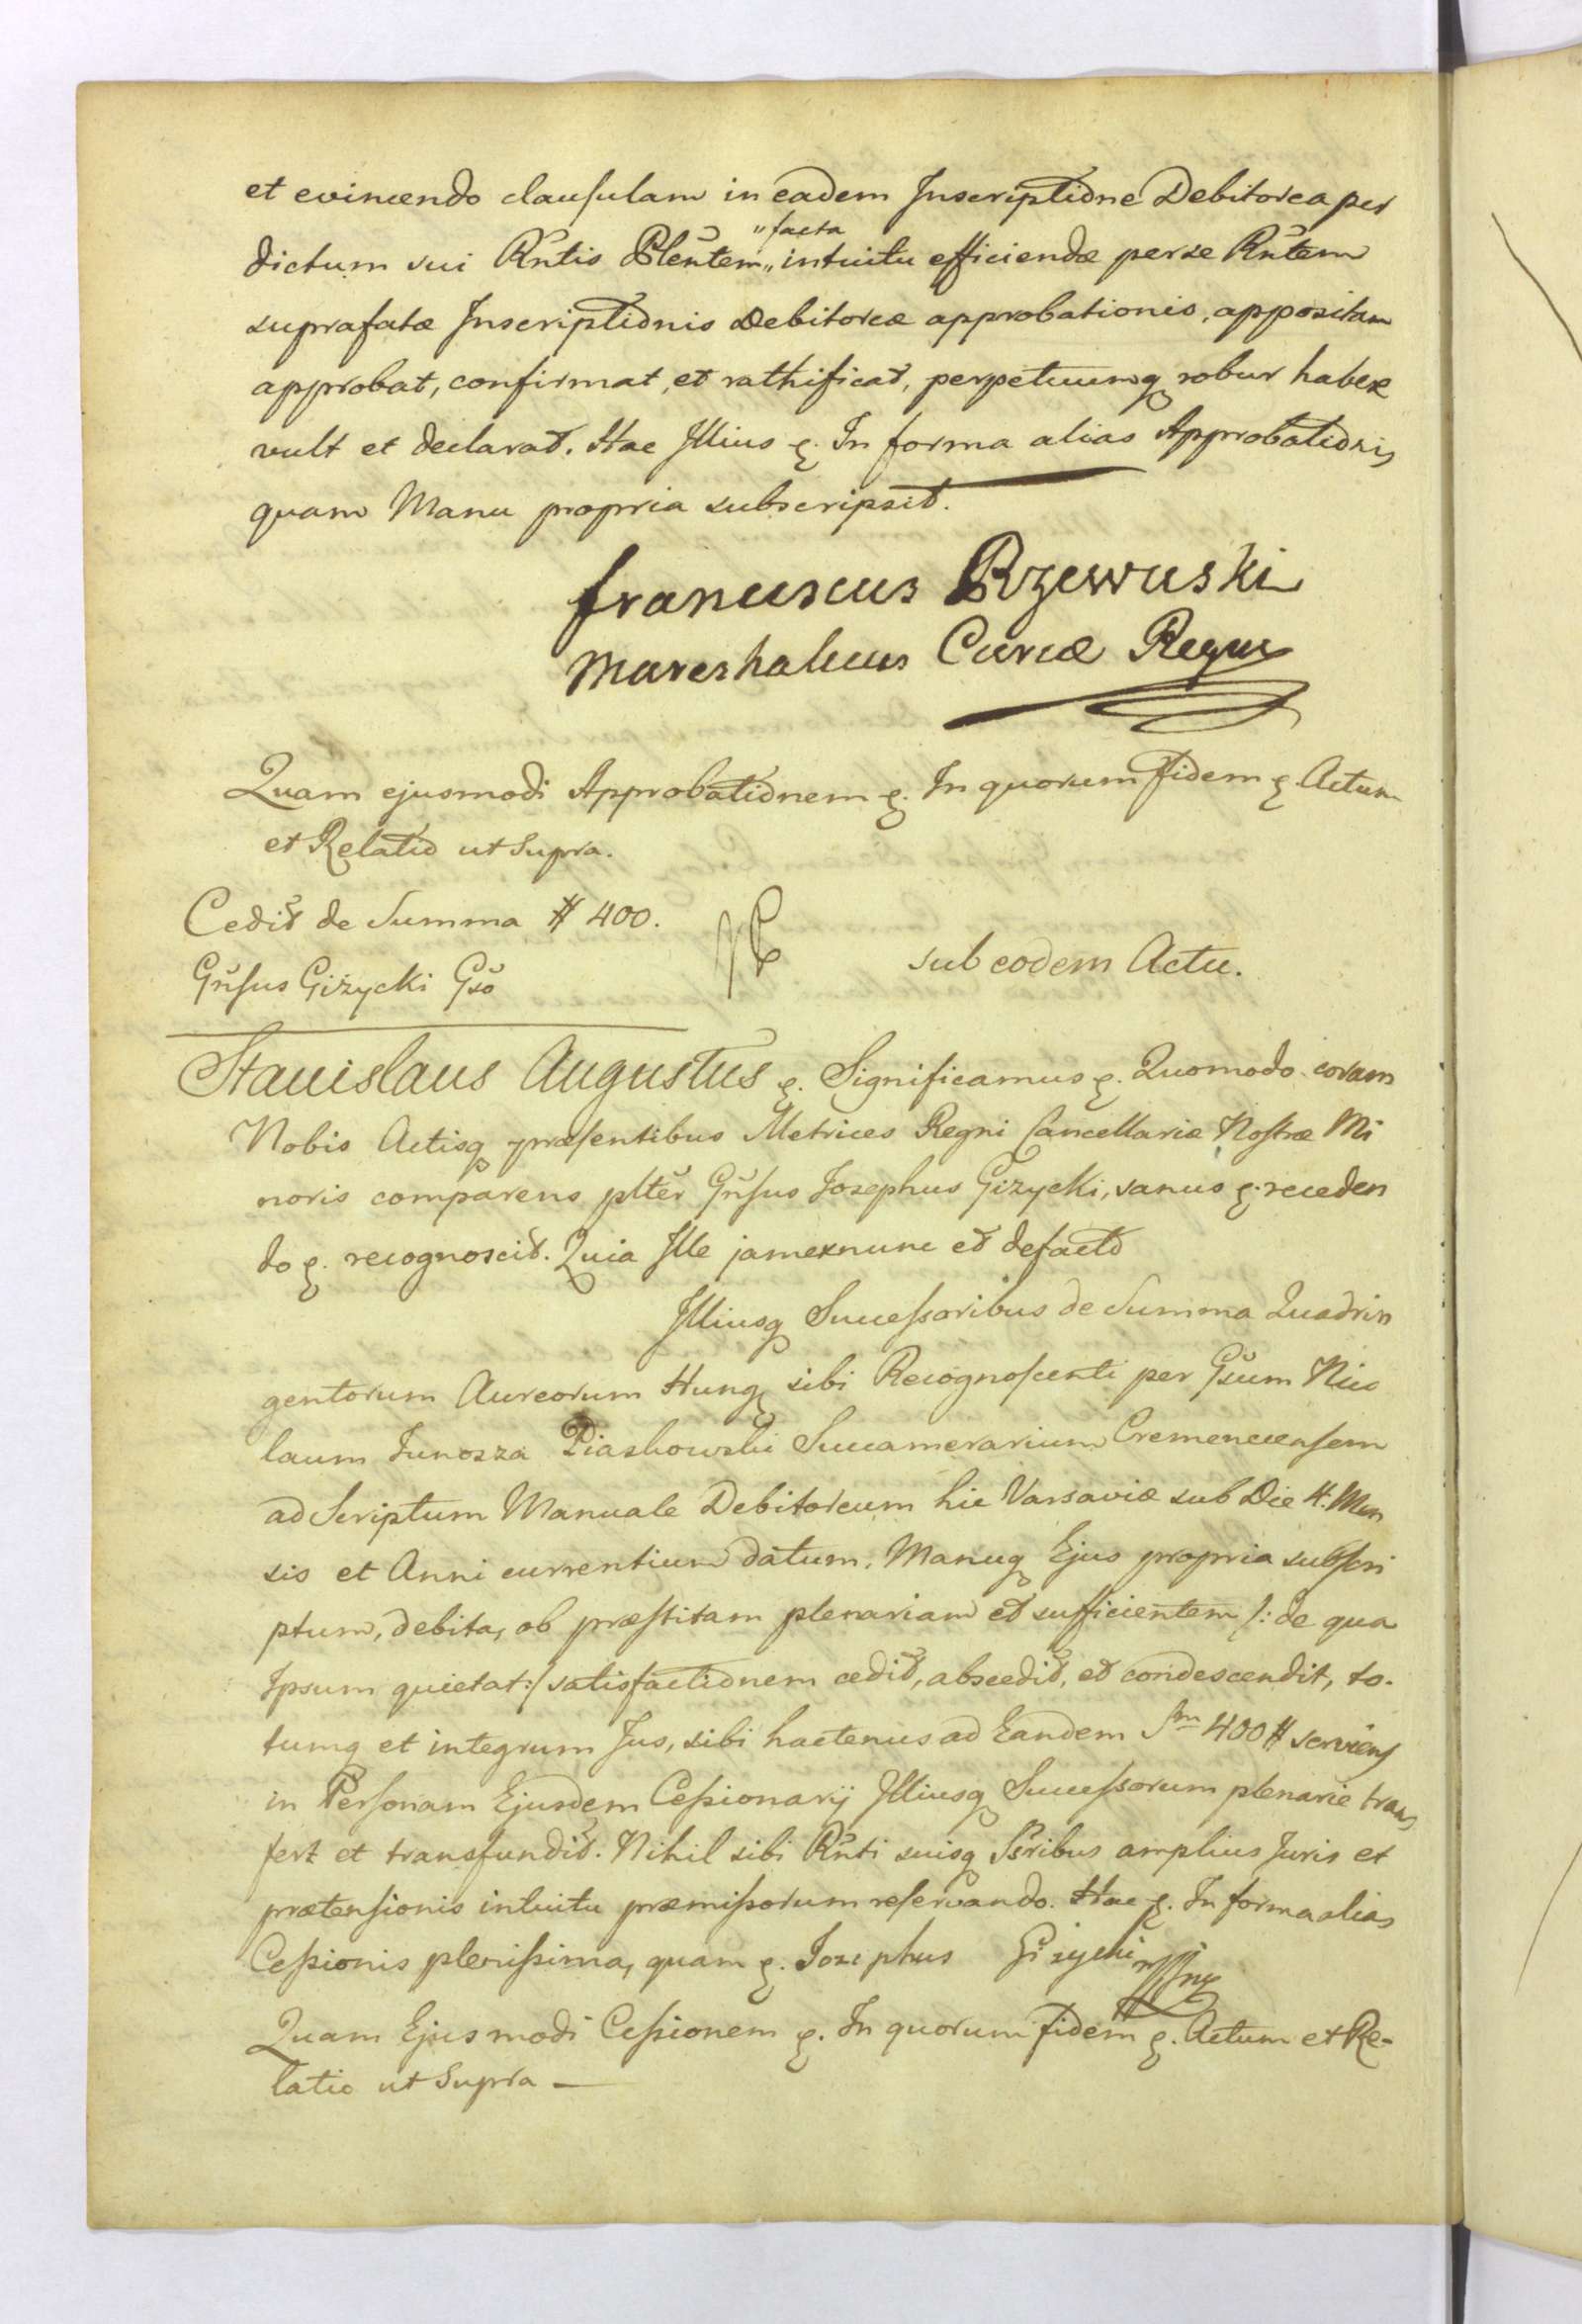 et evincendo clausulam in eadem Inscriptione Debitorea per
"facta
dictum sui Rñtis Plentem,, intuitu efficiendæ per se Rñtem
suprafatæ Inscriptionis Debitoreæ approbationis, appositam
approbat, confirmat, et rathificat, perpetuumq robur habere
vult et declarat. Hac Illius ę. In forma alias Approbationis
quam Manu propria subscripsit.
franciscus Rzewuski
Mareshalcus Curiæ Regiæ
Quam ejusmodi Approbationem ę. In quorum fidem ę. Actum
et Relatio ut Supra.
Cedit de Summa # 400.
Gñsus Giżycki Gso
sub eodem Actu.
Stanislaus Augustus ę. Significamus ę. Quomodo coram
Nobis Actisq præsentibus Metrices Regni Cancellariæ Nostræ Mi
noris comparens plter Gñsus Josephus Giżycki, sanus ę. receden
do ę. recognoscit. Quia Ille jam ex nunc et de facto
Illiusq Successoribus de Summa Quadrin
gentorum Aureorum Hung sibi Recognoscenti per Gsum Nico
laum Junosza Piaskowski Succamerarium Cremenecensem
ad Scriptum Manuale Debitoreum hic Varsaviæ sub Die 4. Men
sis et Anni currentium datum. Manuq Ejus propria subscri
ptum, debita, ob præstitam plenariam et sufficientem /: de qua
Ipsum quietat :/ satisfactionem cedit, abscedit, et condescendit, to-
tumq et integrum Jus, sibi hactenus ad Eandem Sm 400 # serviens
in Personam Ejusdem Cessionarij Illiusq Successorum plenarie trans
fert et transfundit. Nihil sibi Rñti suisq Ssribus amplius Juris et
prætensionis intuitu præmissorum reservando. Hac ę. In forma alias
Cessionis plenissima, quam ę. Josephus Giżycki mp
Quam Ejusmodi Cessionem ę. In quorum fidem ę. Actum et Re-
latio ut Supra —